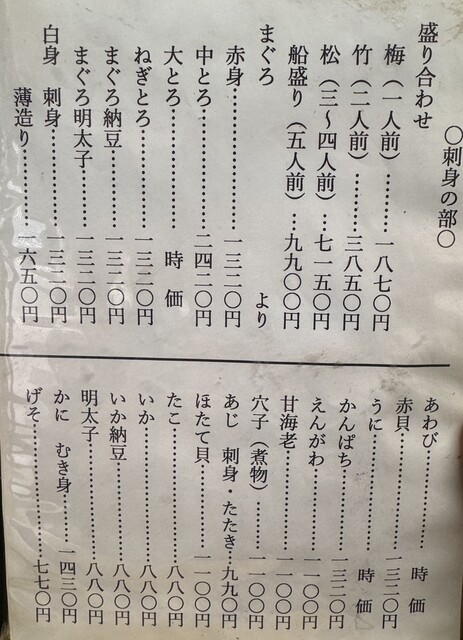 〇刺身の部〇
盛り合わせ
梅（一人前）…一八七〇円
竹（二人前）……三八五〇円
松（三〜四人前）…七一五〇円
船盛り（五人前）…九九〇〇円
まぐろ　より
赤身…………一三二〇円
中とろ…………二四二〇円
大とろ　時価
ねぎとろ…………一三二〇円
まぐろ納豆………一三二〇円
まぐろ明太子……一三二〇円
白身　刺身…………一三二〇円
薄造り………一六五〇円
あわび…………時価
赤貝…………一三二〇円
うに…………時価
かんぱち…………一三二〇円
えんがわ…………一一〇〇円
甘海老…………一一〇〇円
穴子（煮物）………一一〇〇円
あじ　刺身・たたき…九九〇円
ほたて貝…………一一〇〇円
たこ…………八八〇円
いか…………八八〇円
いか納豆…………八八〇円
明太子…………八八〇円
かに　むき身……一四三〇円
げそ…………七七〇円